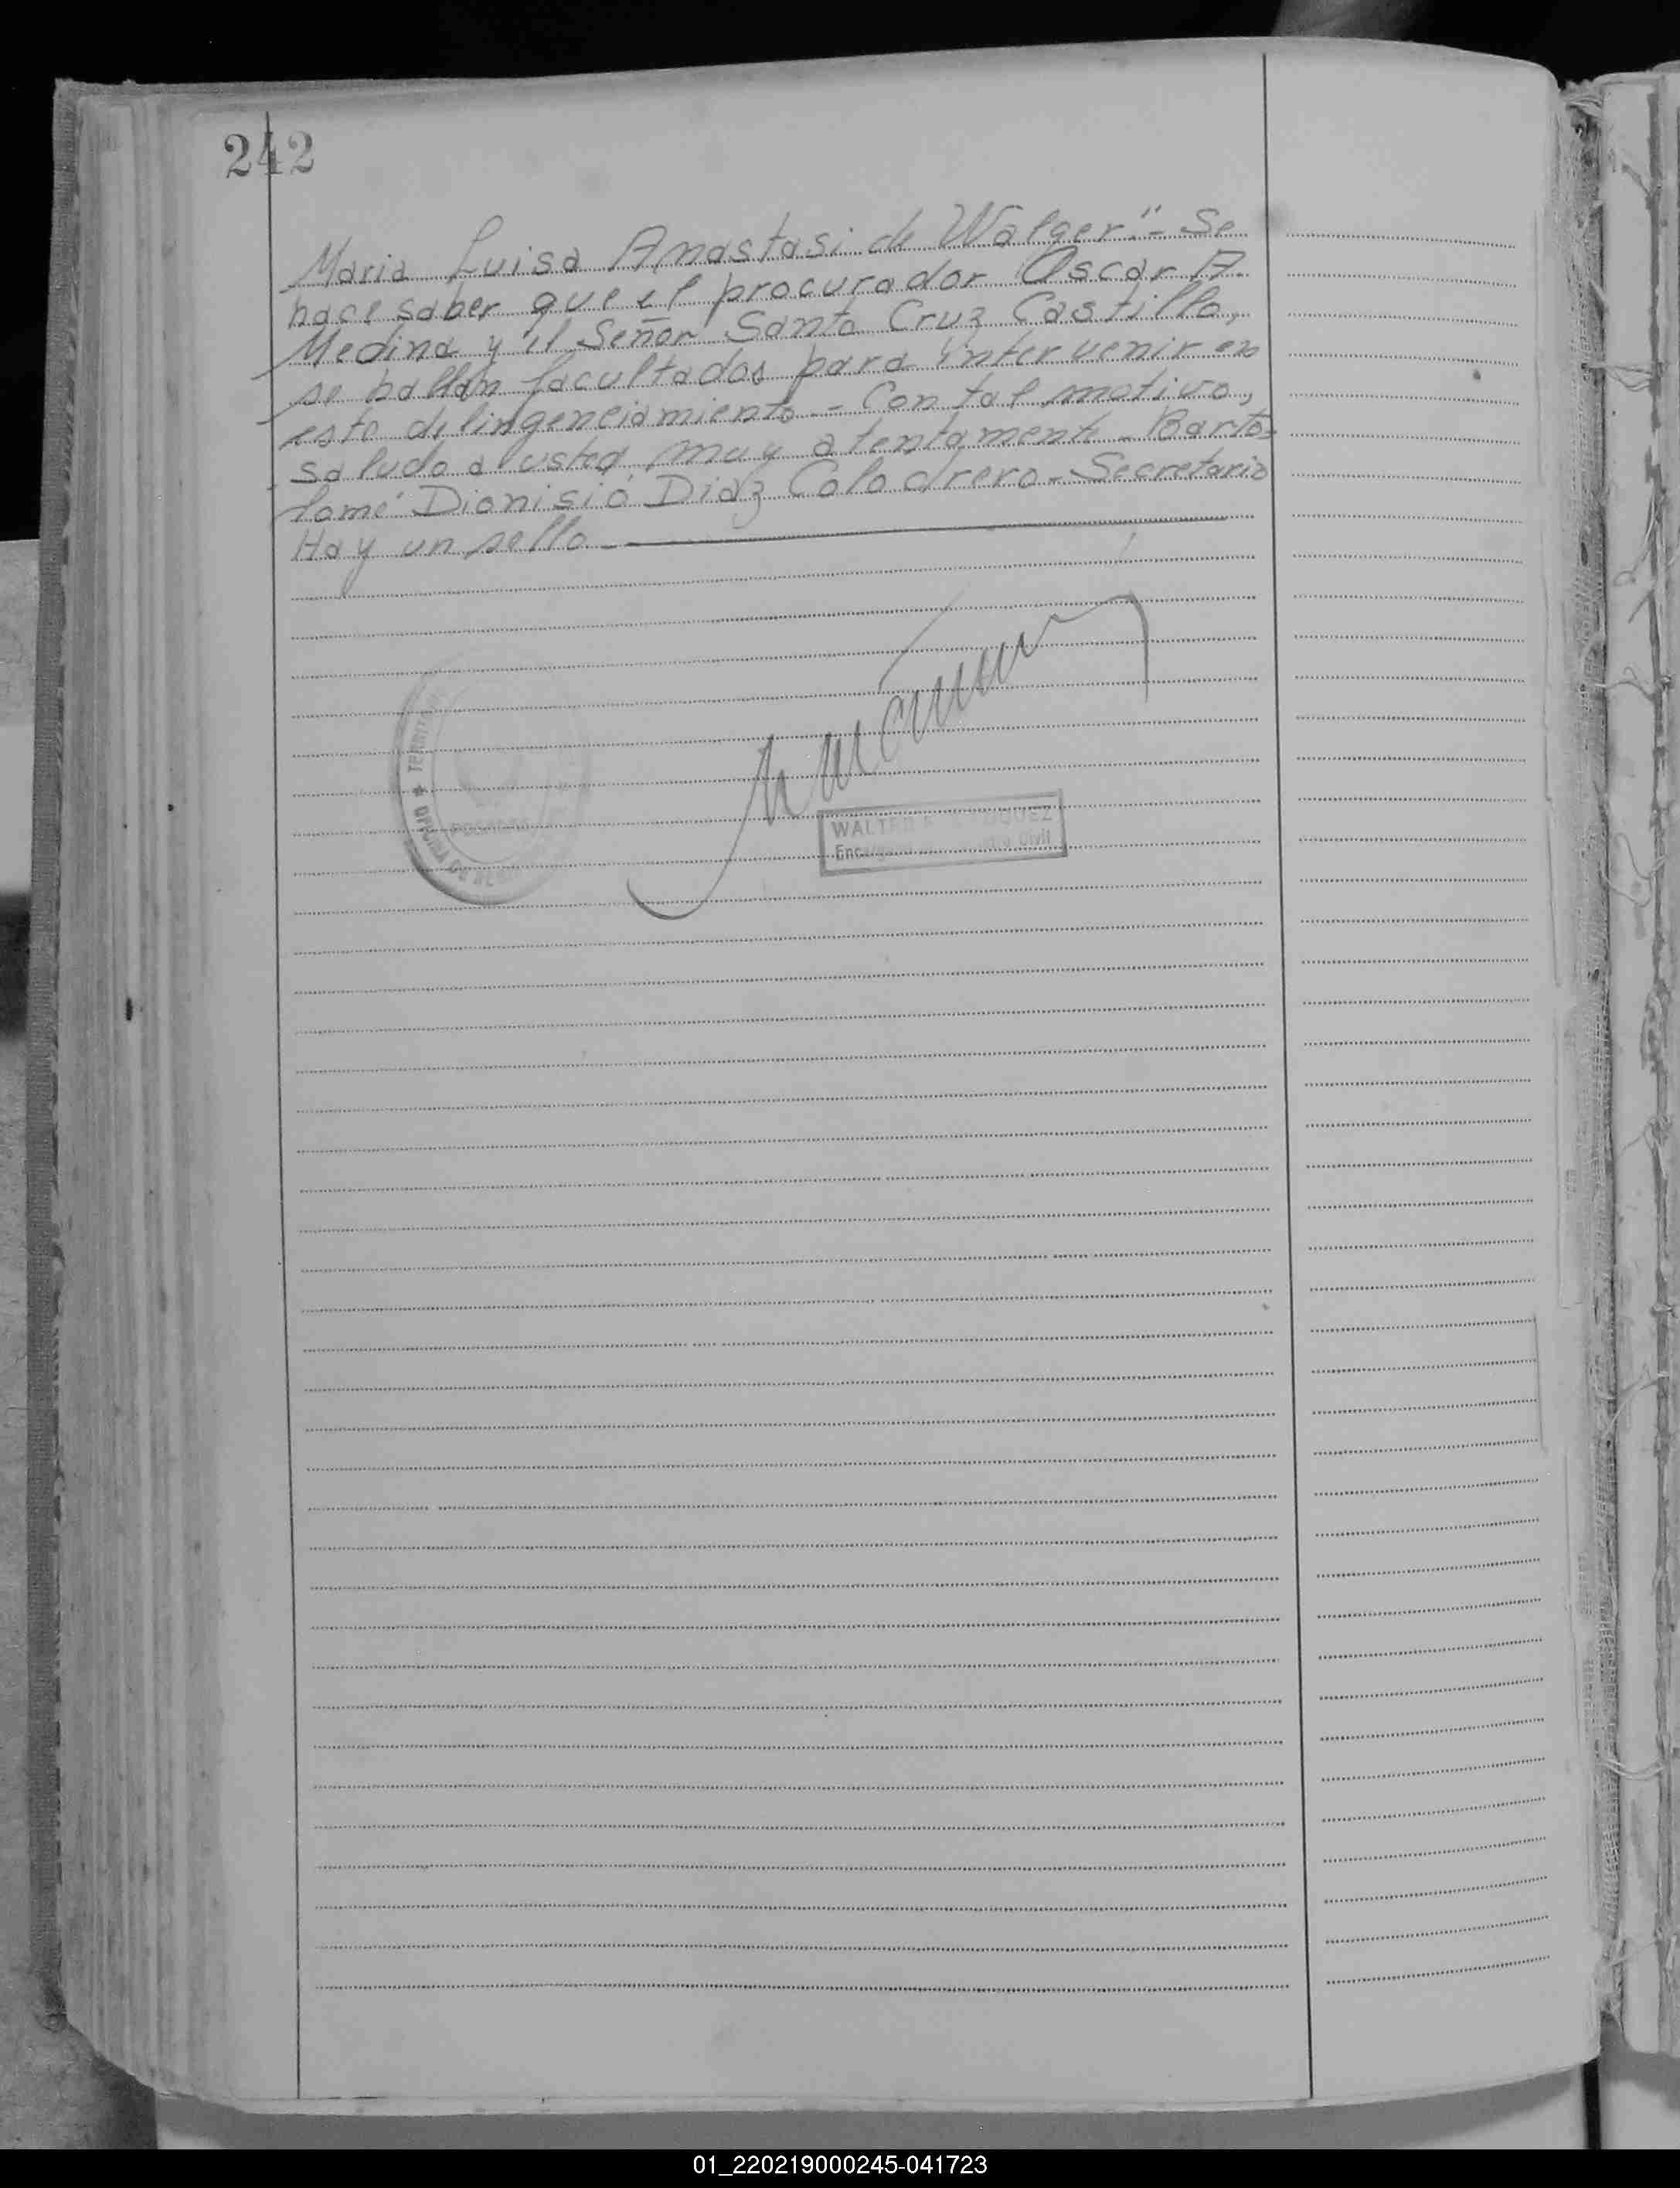 242
Maria Luisa Anastasi de Walger".- Se
hace saber que el procurador Oscar A.
Medina y el Señor Santa Cruz Castillo,
se hallan facultados para intervenir en
este delingenciamiento.- Con tal motivo,
saludo a usted muy atentamente.- Barto-
lomé Dionisio Diaz Colodrero.- Secretario
Hay un sello.-
TERRIT
WALTER
Civil
01_220219000245-041723